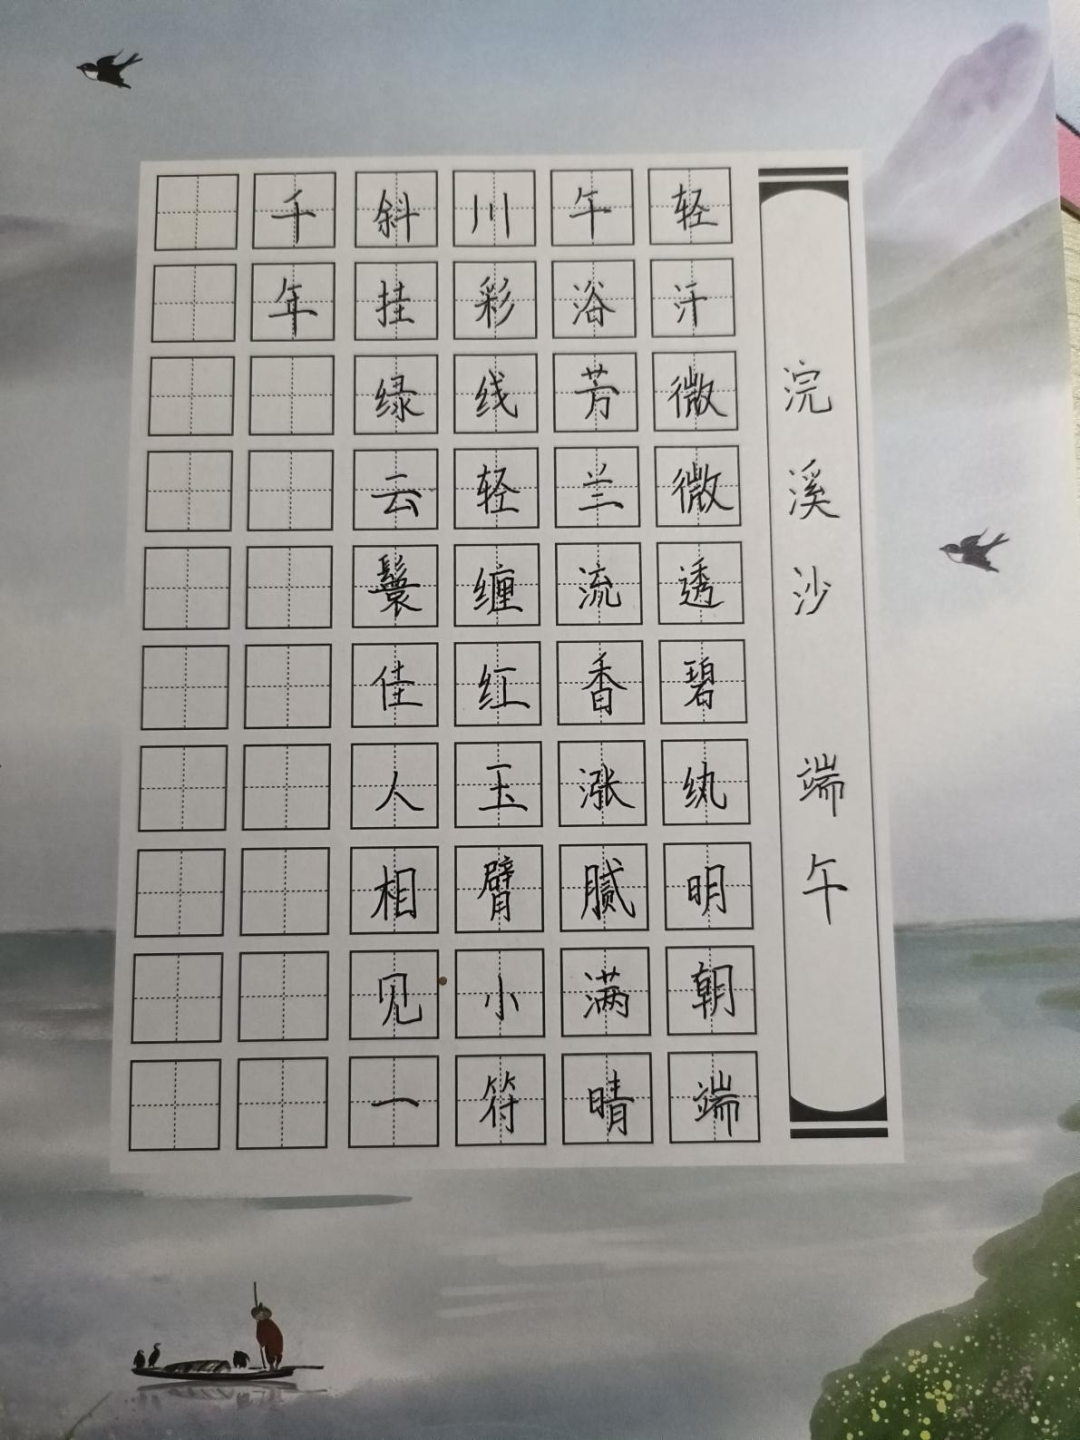 浣溪沙 端午
轻汗微微透碧纨明朝端
午浴芳兰流香涨腻满晴
川彩线轻缠红玉臂小符
斜挂绿云鬟佳人相见一
千年